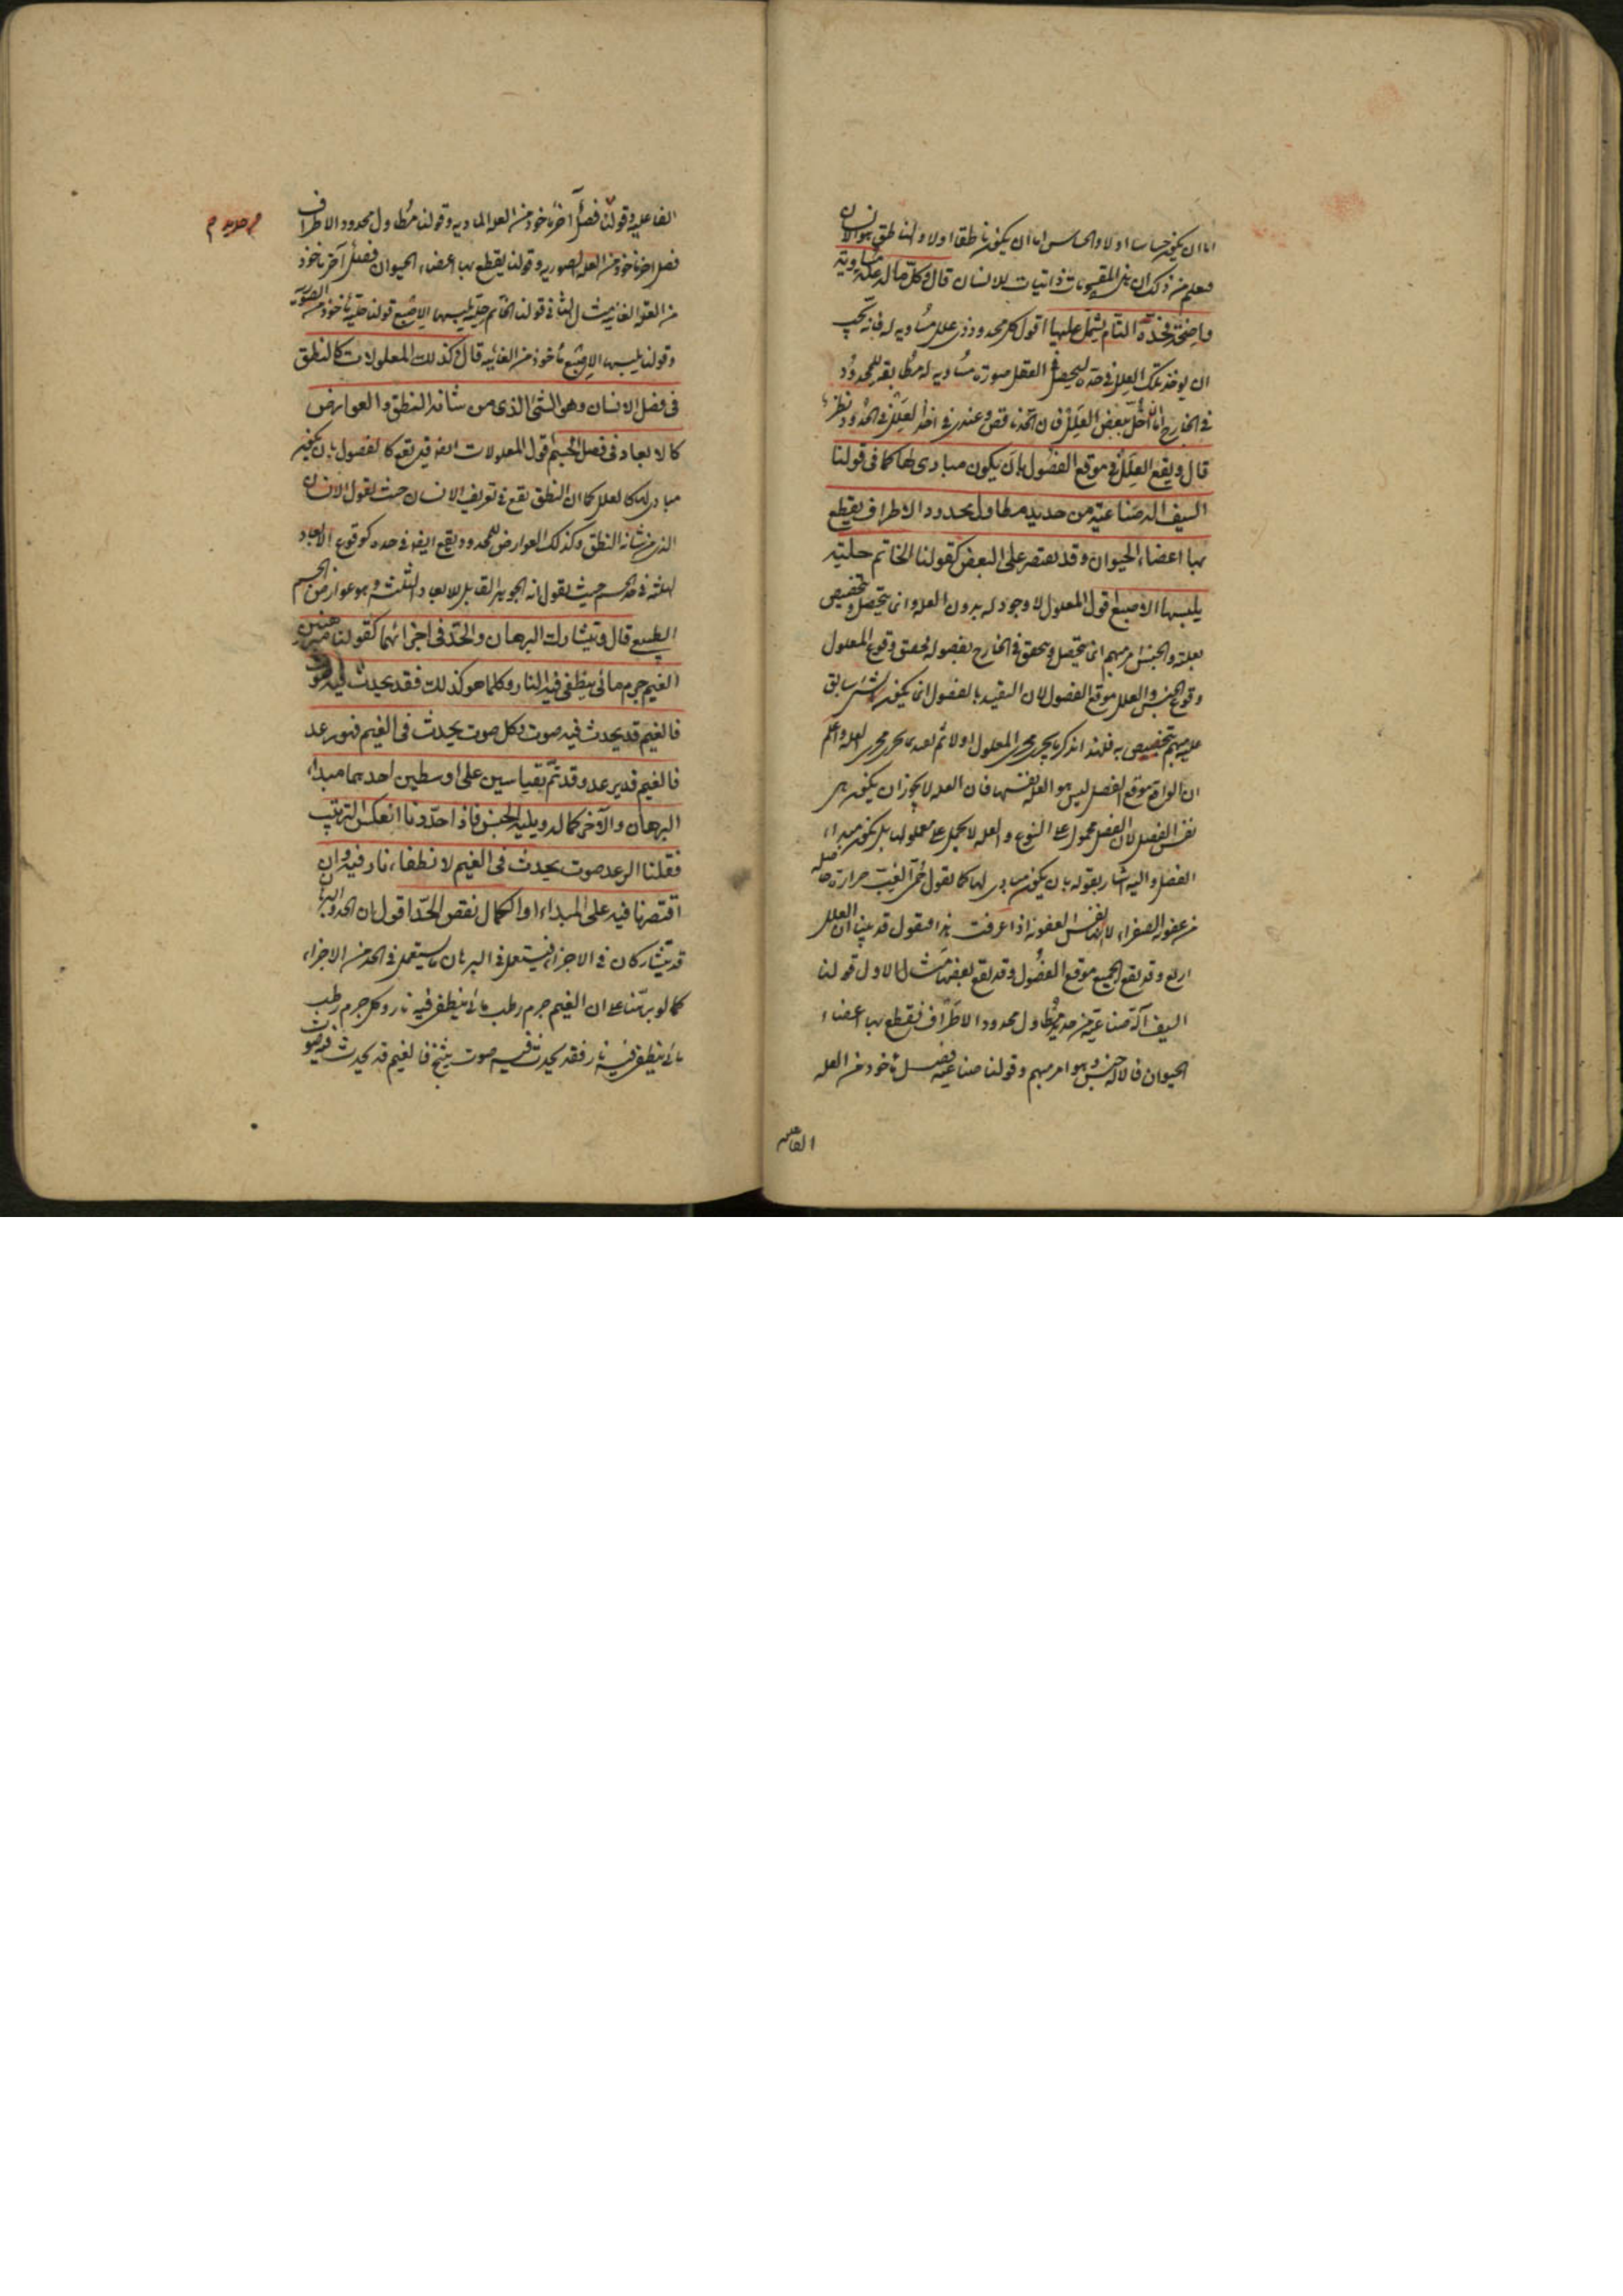 اما ان يكون حساسا اولا والحساس اما ان يكون ناطقا اولا والناطق هو الانسان
فعلم من ذلك ان هذه المقسومات ذاتيات للانسان قال وكل ما له علة مساوية
واضحة فحده التام يشتمل عليها اقول كل محدود ذى علل مساويه له فانه يجب
ان يوخذ تلك العلل فى حده ليحصل فى العقل صورة مساويه له مطابقه للمحدود
فى الخارج اما اذا اخل ببعض العلل فان الحد ناقص وعندى فى اخذ العلل فى الحدود نظر
قال ويقع العلل فى موقع الفصول بان يكون مبادى لها كما فى قولنا
السيف اله صناعية من حديد مطاول محدود الاطراف يقطع
بها اعضاء الحيوان وقد يقتصر على البعض كقولنا الخاتم حلية
يلبسها الاصبع اقول المعلول لا وجود له بدون العله وانما يتحصل ويتخصص
بعلته والجنس امر مبهم انما يتحصل ويتحقق فى الخارج بفصوله فيحقق وقوع المعلول
وقوع الجنس والعلل موقع الفصول لان التقييد بالفصول انما يكون لشئ سابق
عليه مبهم يتخصص به فلهذا انذكر ما يجرى مجرى المعلول اولا ثم بعده ما يجرى مجرى العله واعلم
ان الواقع موقع الفصل ليس هو العلة نفسها فان العله لا يجوز ان يكون هى
نفس الفصل لان الفصل محمول على النوع والعله لا يحمل على معلولها بل يكون مبداء
الفصل واليه اشار بقوله بان يكون مبادى لها كما نقول حمى الغب حرارة حاصله
من عفونه الصفراء لا نفس العفونه اذا عرفت هذا فنقول قد بينا ان العلل
اربع وقد يقع الجميع موقع الفصول وقد يقع بعضها مثال الاول قولنا
السيف آلة صناعية من حديد مطاول محدود الاطراف يقطع بها اعضاء
الحيوان فالالة جنس وهو امر مبهم وقولنا صناعية فصل ماخوذ من العله
الفاعليه
الفاعليه وقولنا فصل آخر ماخوذ من العله الماديه وقولنا مطاول محدود الاطراف
من حديد م
فصل اخر ماخوذ من العله الصوريه وقولنا يقطع بها اعضاء الحيوان فصل آخر ماخوذ
من العله الغائيه مثال الثانى قولنا الخاتم حلية يلبسها الاصبع قولنا حلية ماخوذ من الصورة
وقولنا يلبسها الاصبع ماخوذ من الغائيه قال وكذلك المعلولات كالنطق
فى فصل الانسان وهو الشئ الذى من شانه النطق والعوارض
كالابعاد فى فصل الجسم اقول المعلولات ايضا قد يقع كالفصول بان يكون
مبادى لها كالعلل كما ان النطق يقع فى تعريف الانسان حيث نقول الانسان
الذى من شانه النطق وكذلك العوارض للمحدود يقع ايضا فى حده كوقوع الابعاد
الثلثه فى حد الجسم حيث نقول انه الجوهر القابل للابعاد الثلثة وهو عوارض الجسم
الطبيعى قال ويتشارك البرهان والحد فى اجزائهما كقولنا
الغيم جرم مائى ينطفى فيه النار وكلما هو كذلك فقد يحدث فيه صوت
فالغيم قد يحدث فيه صوت وكل صوت يحدث فى الغيم فهو رعد
فالغيم قد يرعد وقد تم بقياسين على اوسطين احدهما مبداء
البرهان والآخر كماله ويليه الجنس فاذا حددنا انعكس الترتيب
فقلنا الرعد صوت يحدث فى الغيم لانطفاء نار فيه وان
اقتصرنا فيه على المبداء او الكمال نقص الحد اقول ان الحد والبرهان
قد يتشاركان فى الاجزاء فيستعمل فى البرهان ما يستعمل فى الحد من الاجزاء
كما لو برهنا على ان الغيم جرم رطب مائى ينطفى فيه نار وكل جرم رطب
مائى ينطفى فيه نار فقد يحدث فيه صوت ينتج فالغيم قد يحدث فيه صوت